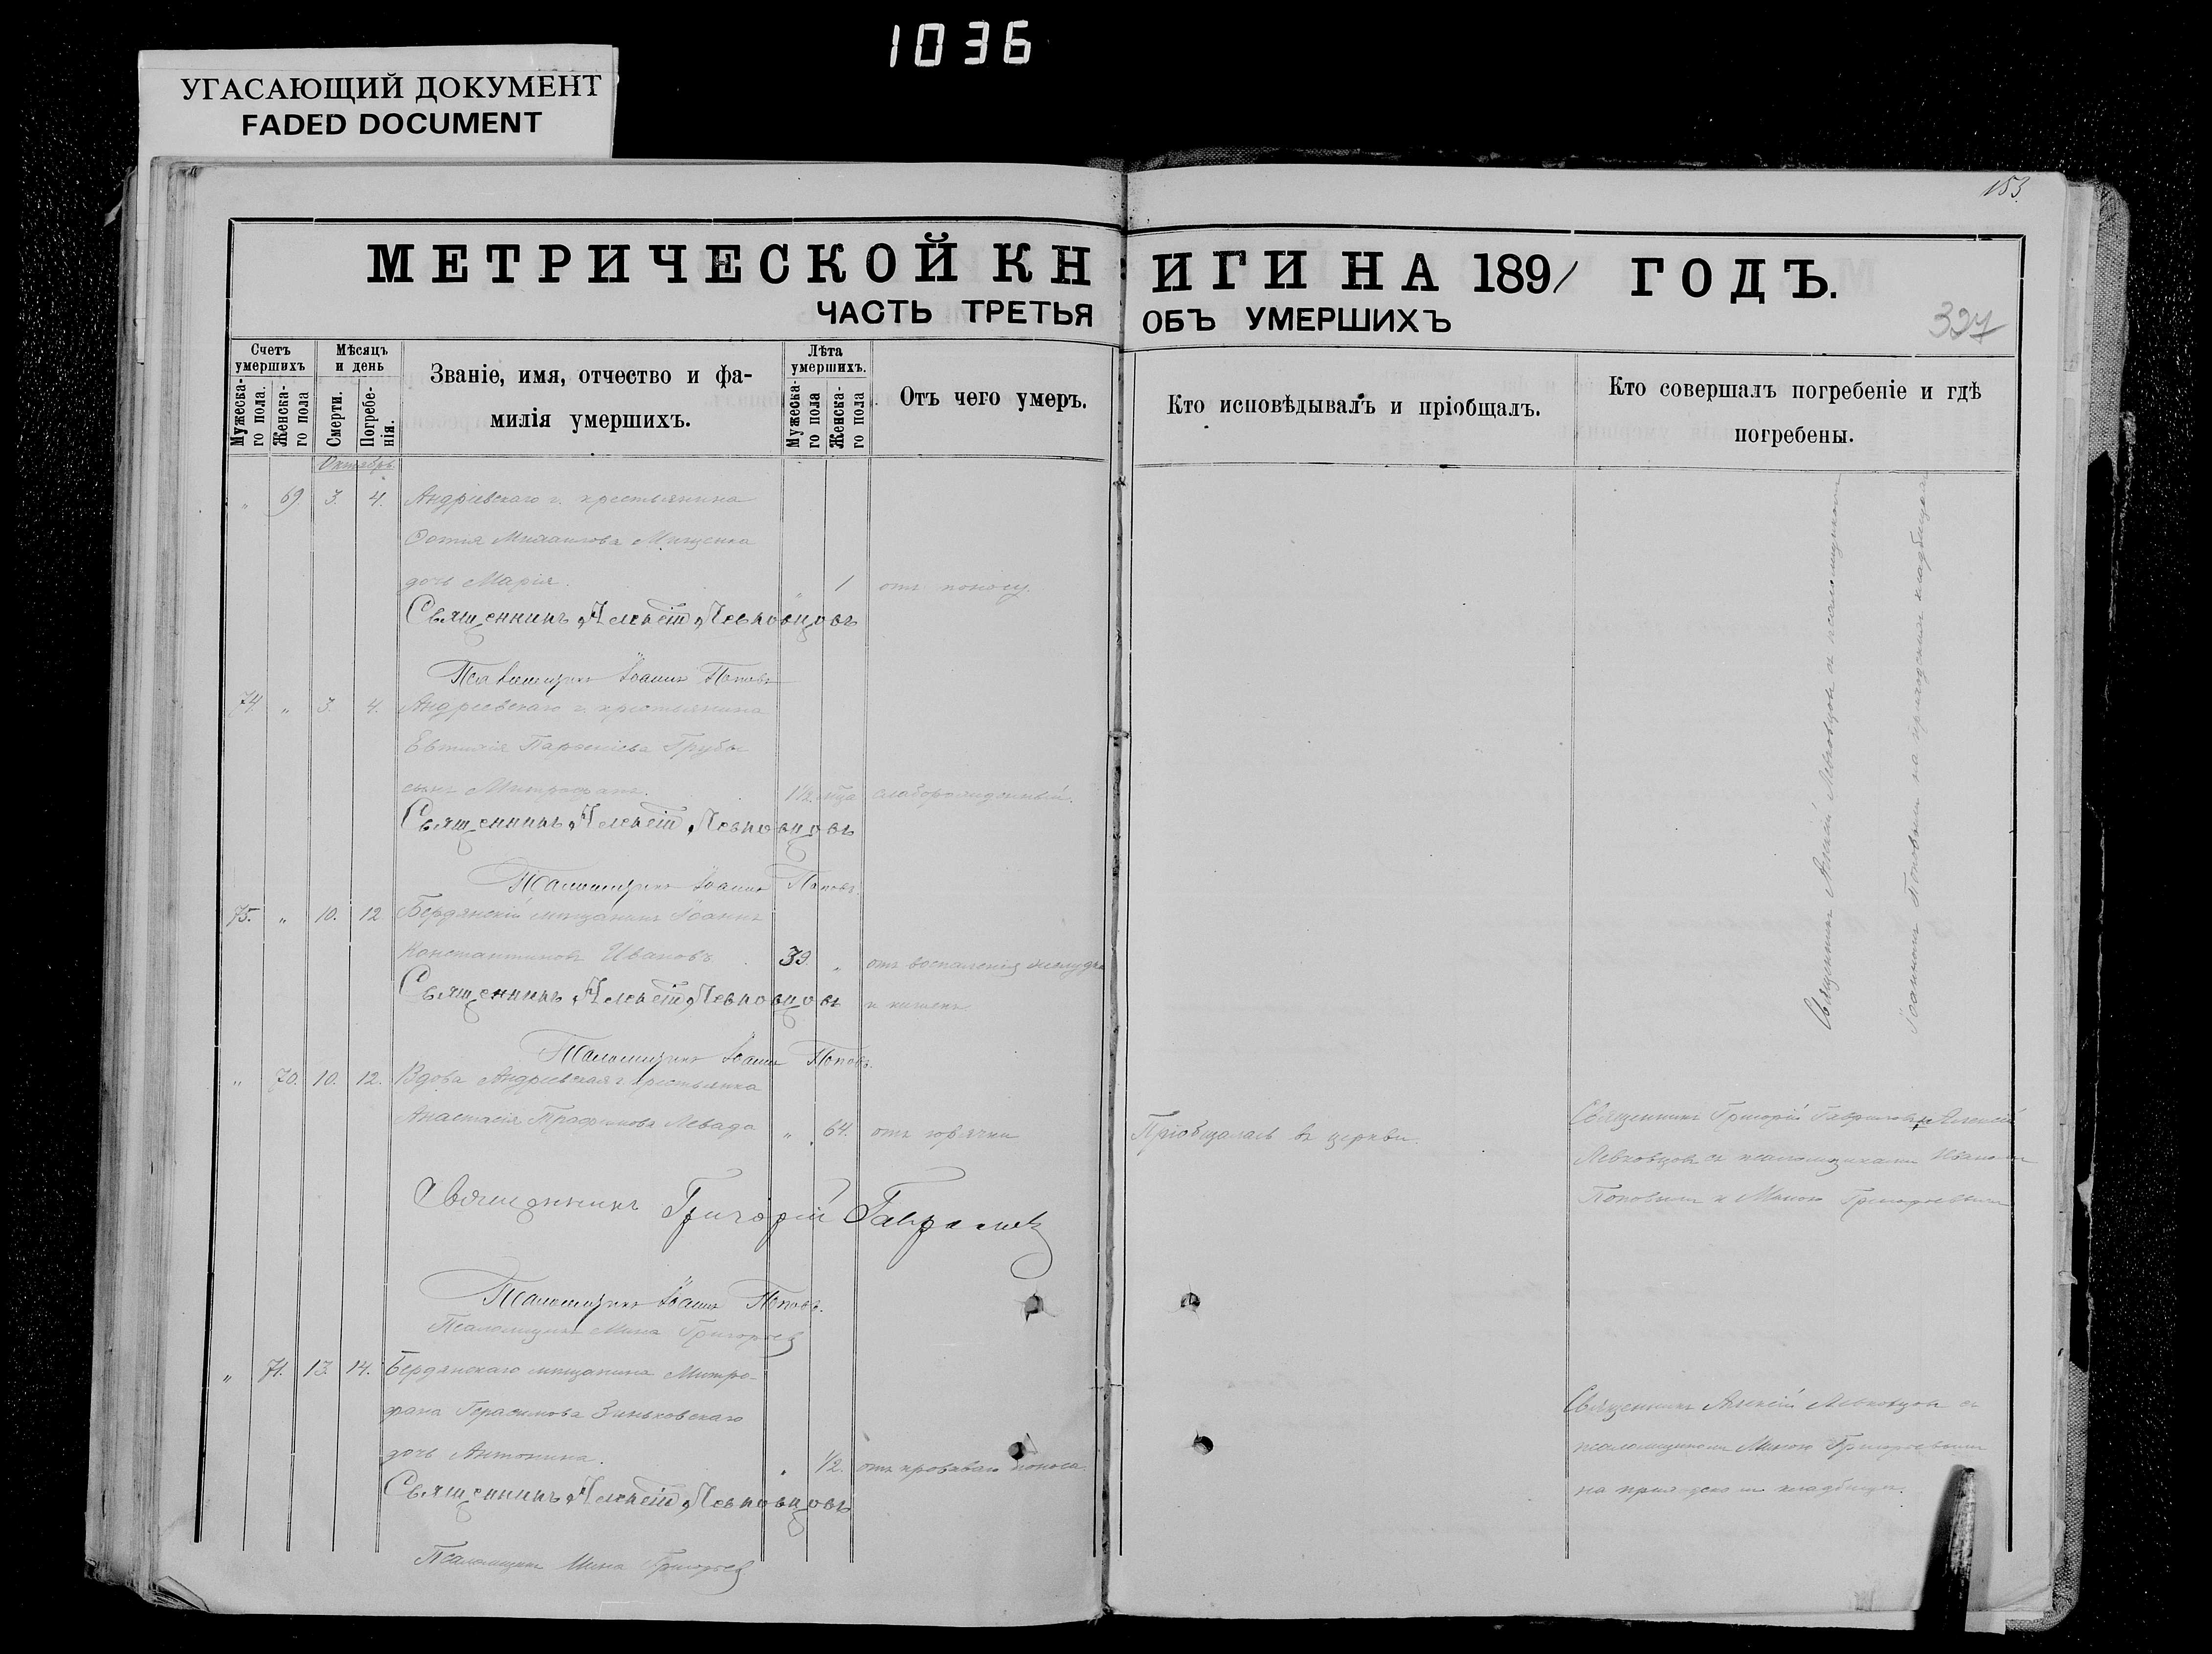 1036
УГАСАЮЩИЙ ДОКУМЕНТ
FADED DOCUMENT
153.
МЕТРИЧЕСКОЙ КНИГИ НА 1891 ГОДЪ.
ЧАСТЬ ТРЕТЬЯ ОБЪ УМЕРШИХЪ
327
Счетъ умершихъ
Мужеска-го пола.
Женска-го пола
Мѣсяцъ и день
Смерти.
Погребе-нія.
Званіе, имя, отчество и фа-
милія умершихъ.
Лѣта умершихъ.
Мужеска-го пола
Женска-го пола
Отъ чего умеръ.
Кто исповѣдывалъ и пріобщалъ.
Кто совершалъ погребеніе и гдѣ
погребены.
Октябрь
„ 69 3. 4. Андріевскаго г. крестьянина
Фотія Михаилова Мищенка
дочь Марія. „ 1 отъ поносу.
Священникъ Алексій Левковцовъ
Псаломщикъ Іоаннъ Поповъ
74 „ 3. 4. Андреевскаго г. крестьянина
Евтихія Парѳеніева Грубы
сынъ Митрофанъ. 1½ мѣца слаборожденный.
Священникъ Алексій Левковцовъ
Псаломщикъ Іоаннъ Поповъ
75. „ 10. 12 Бердянскій мѣщанинъ Іоаннъ
Константиновъ Ивановъ. 39. „ отъ воспаленія желудка
и кишекъ
Священникъ Алексій Левковцовъ
Псаломщикъ Іоаннъ Поповъ.
„ 70. 10. 12. Вдова Андреевская г. крестьянка
Анастасія Трофимова Левада „ 64. отъ горячки
Пріобщалась въ церкви.
Священникъ Григорій Гавриловъ и Алексій
Левковцовъ съ псаломщиками Иваномъ
Поповымъ и Миною Григорьевымъ
Священникъ Григорій Гавриловъ
Псаломщикъ Іоаннъ Поповъ.
Псаломщикъ Мина Григорьевъ
„ 71. 13. 14. Бердянскаго мѣщанина Митро-
фана Герасимова Зиньковскаго
дочь Антонина. „ 1/2. отъ кроваваго поноса.
Священникъ Алексій Левковцовъ съ
псаломщикомъ Миною Григорьевымъ
на приходскомъ кладбищѣ.
Священникъ Алексій Левковцовъ
Псаломщикъ Мина Григорьевъ
Священникъ Алексій Левковцовъ съ псаломщикомъ
Іоанномъ Поповымъ на приходскомъ кладбищѣ